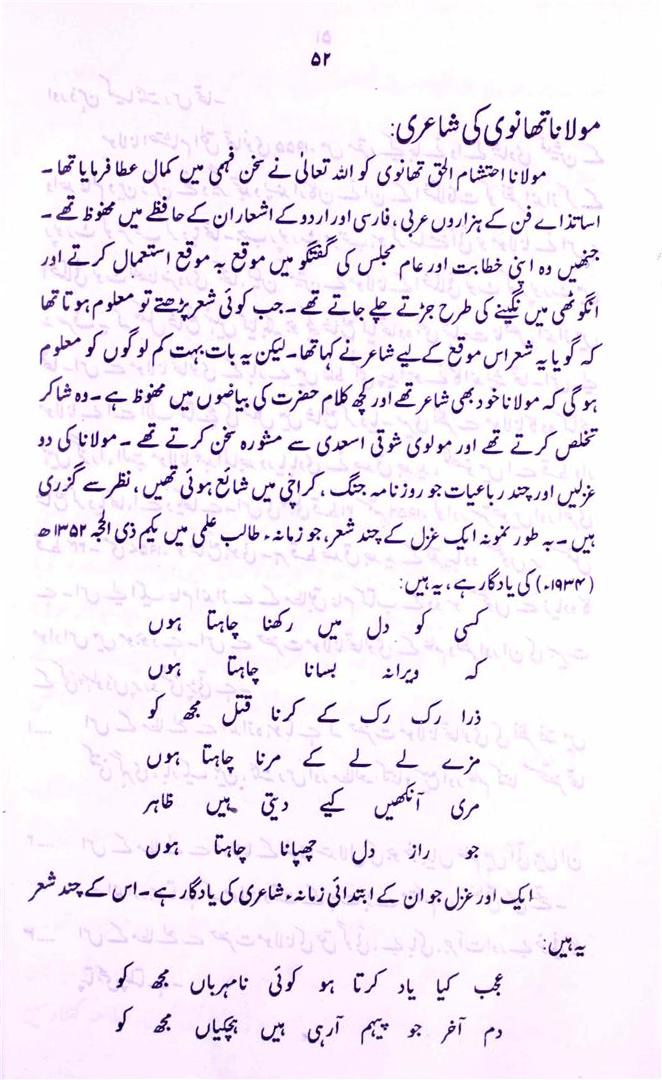 ۵۲
مولانا تھانوی کی شاعری:
مولانا احتشام الحق تھانوی کو اللہ تعالیٰ نے سخن فہمی میں کمال عطا فرمایا تھا۔
اساتذاے فن کے ہزاروں عربی، فارسی اور اردو کے اشعار ان کے حافظے میں محفوظ تھے۔
جنھیں وہ اپنی خطابت اور عام مجلس کی گفتگو میں موقع بہ موقع استعمال کرتے اور
انگوٹھی میں نگینے کی طرح جڑتے چلے جاتے تھے۔ جب کوئی شعر پڑھتے تو معلوم ہوتا تھا
کہ گویا یہ شعر اس موقع کے لیے شاعر نے کہا تھا۔ لیکن یہ بات بہت کم لوگوں کو معلوم
ہو گی کہ مولانا خود بھی شاعر تھے اور کچھ کلام حضرت کی بیاضوں میں محفوظ ہے۔ وہ شاکر
تخلص کرتے تھے اور مولوی شوقی اسعدی سے مشورہ سخن کرتے تھے۔ مولانا کی دو
غزلیں اور چند رباعیات جو روزنامہ جنگ، کراچی میں شائع ہوئی تھیں، نظر سے گزری
ہیں۔ بہ طور نمونہ ایک غزل کے چند شعر، جو زمانہء طالب علمی میں یکم ذی الحجہ ۱۳۵۲ھ
(۱۹۳۴ء) کی یادگار ہے، یہ ہیں:
کسی کو دل میں رکھنا چاہتا ہوں
کہ ویرانہ بسانا چاہتا ہوں
ذرا رک رک کے کرنا قتل مجھ کو
مزے لے لے کے مرنا چاہتا ہوں
مری آنکھیں کیے دیتی ہیں ظاہر
جو راز دل چھپانا چاہتا ہوں
ایک اور غزل جو ان کے ابتدائی زمانہء شاعری کی یادگار ہے۔ اس کے چند شعر
یہ ہیں:
عجب کیا یاد کرتا ہو کوئی نامہرباں مجھ کو
دم آخر جو پیہم آرہی ہیں ہچکیاں مجھ کو